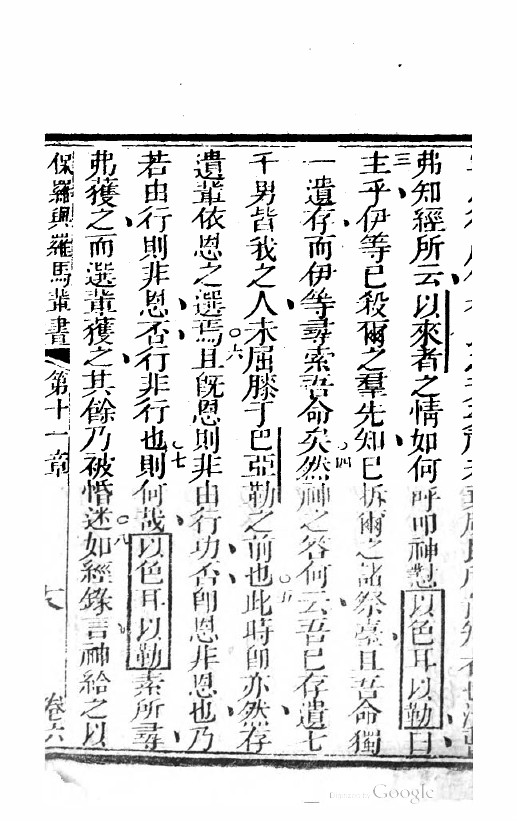 弗知經所云以來者之情如何呼叩神懟以色耳以勒曰
三主乎伊等已殺爾之羣先知已拆爾之諸祭臺且吾命獨
一遺存而伊等尋索吾命矣○四然神之答何云吾已存遺七
千男皆我之人未屈膝于巴亞勒之前也○五此時卽亦然存
遺輩依恩之選焉○六且旣恩則非由行功否卽恩非恩也乃
若由行則非恩否行非行也○七則何哉以色耳以勒素所尋
弗獲之而選輩獲之其餘乃被惛迷○八如經錄言神給之以
保羅與羅馬輩書 第十一章 卷六
Digitized by Google